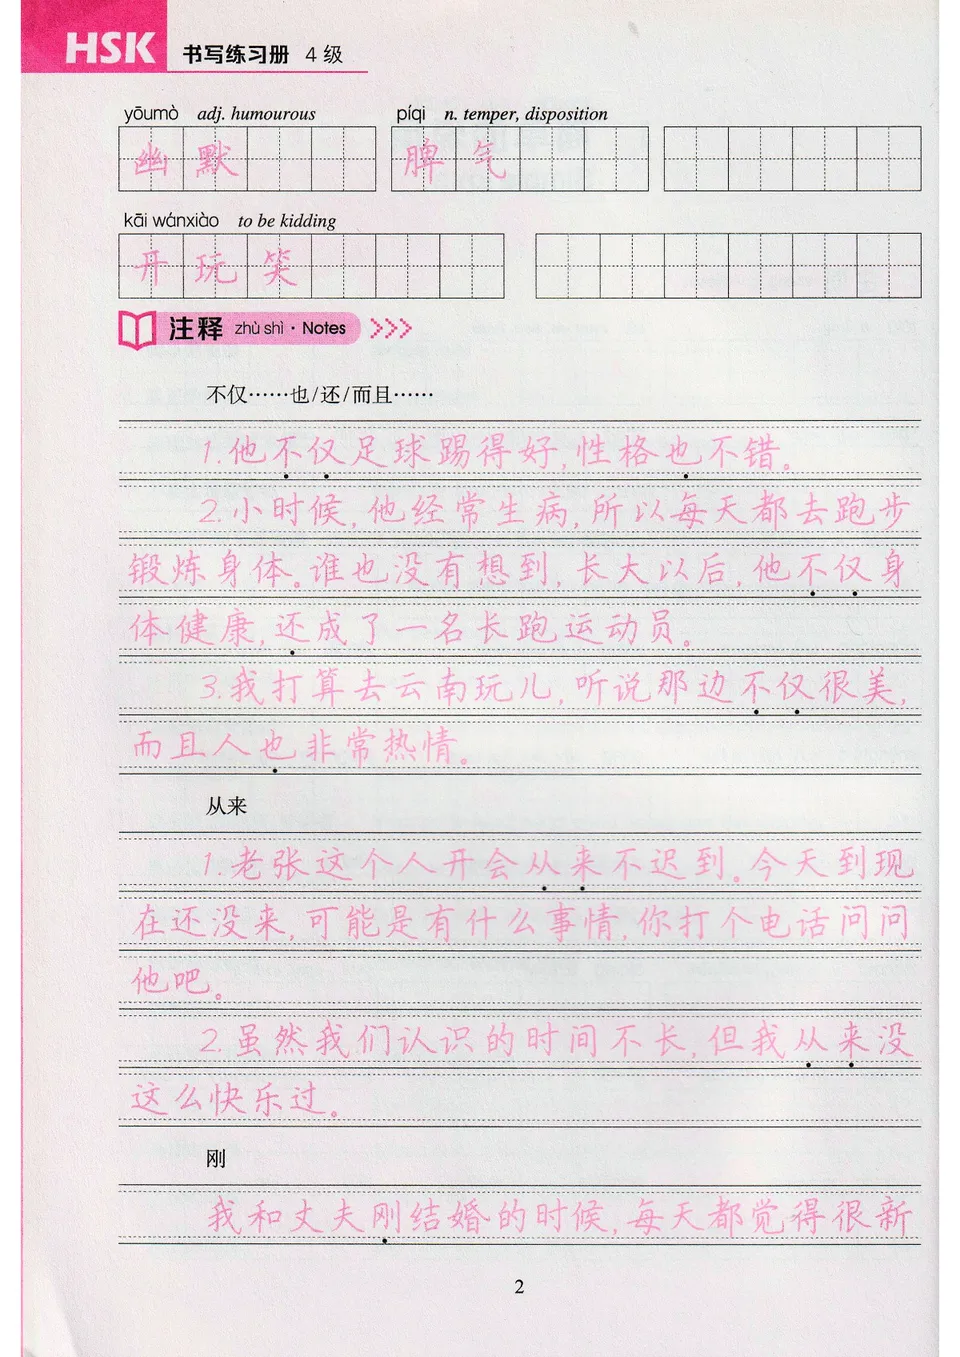 HSK 书写练习册 4 级
yōumò adj. humourous píqi n. temper, disposition
幽默 脾气
kāi wánxiào to be kidding
开玩笑
注释 zhù shì · Notes
不仅……也/还/而且……
1.他不仅足球踢得好,性格也不错。
2.小时候,他经常生病,所以每天都去跑步
锻炼身体。谁也没有想到,长大以后,他不仅身
体健康,还成了一名长跑运动员。
3.我打算去云南玩儿,听说那边不仅很美,
而且人也非常热情。
从来
1.老张这个人开会从来不迟到。今天到现
在还没来,可能是有什么事情,你打个电话问问
他吧。
2.虽然我们认识的时间不长,但我从来没
这么快乐过。
刚
我和丈夫刚结婚的时候,每天都觉得很新
2